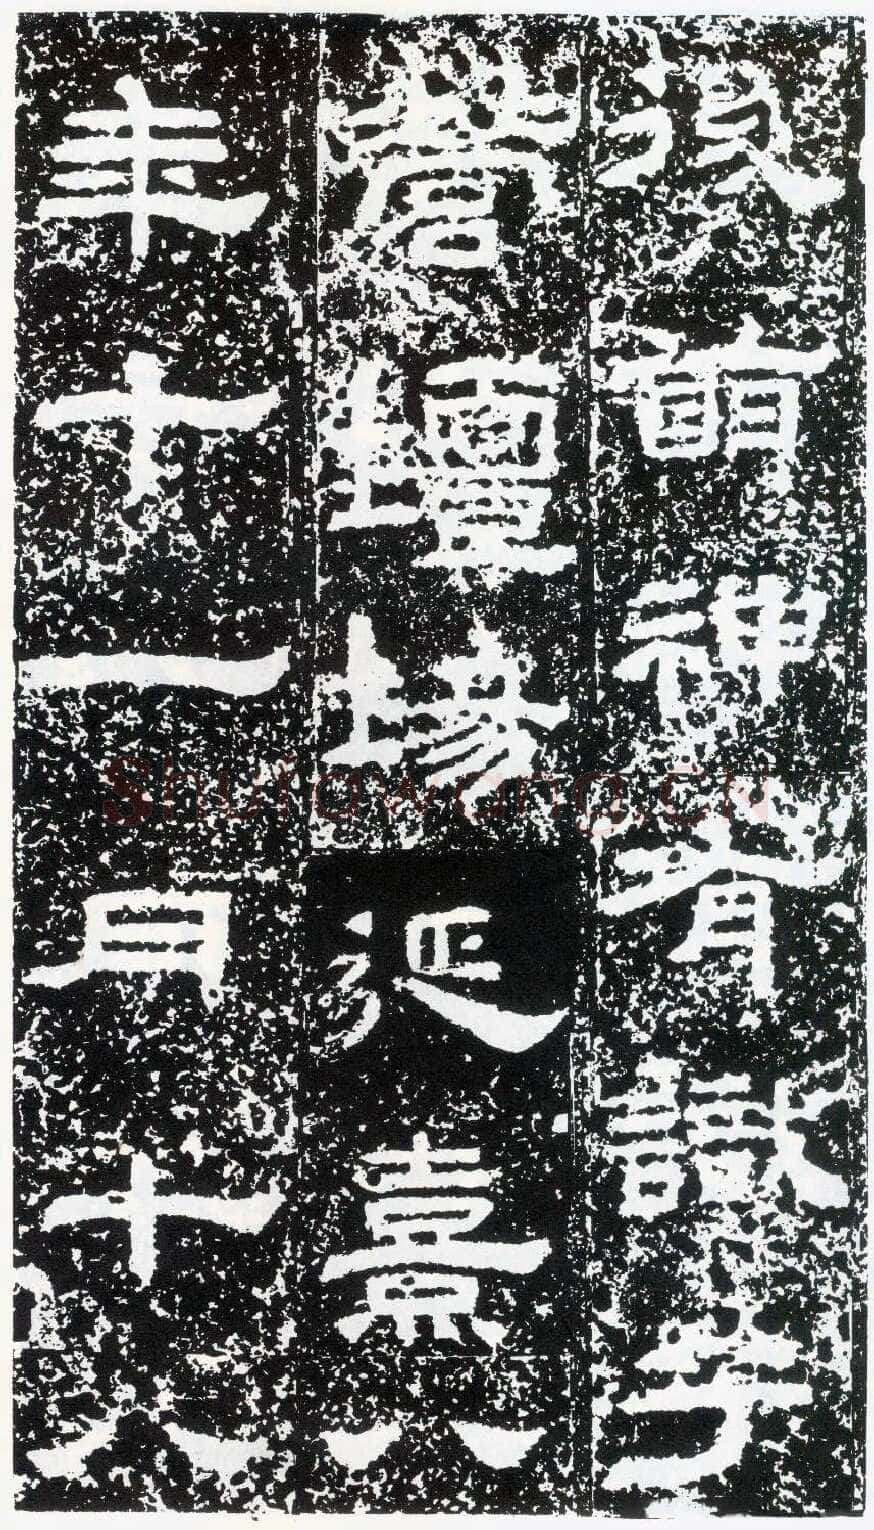 神有識孝
營壇場延熹八
年十一月十八
Shufawang.CN